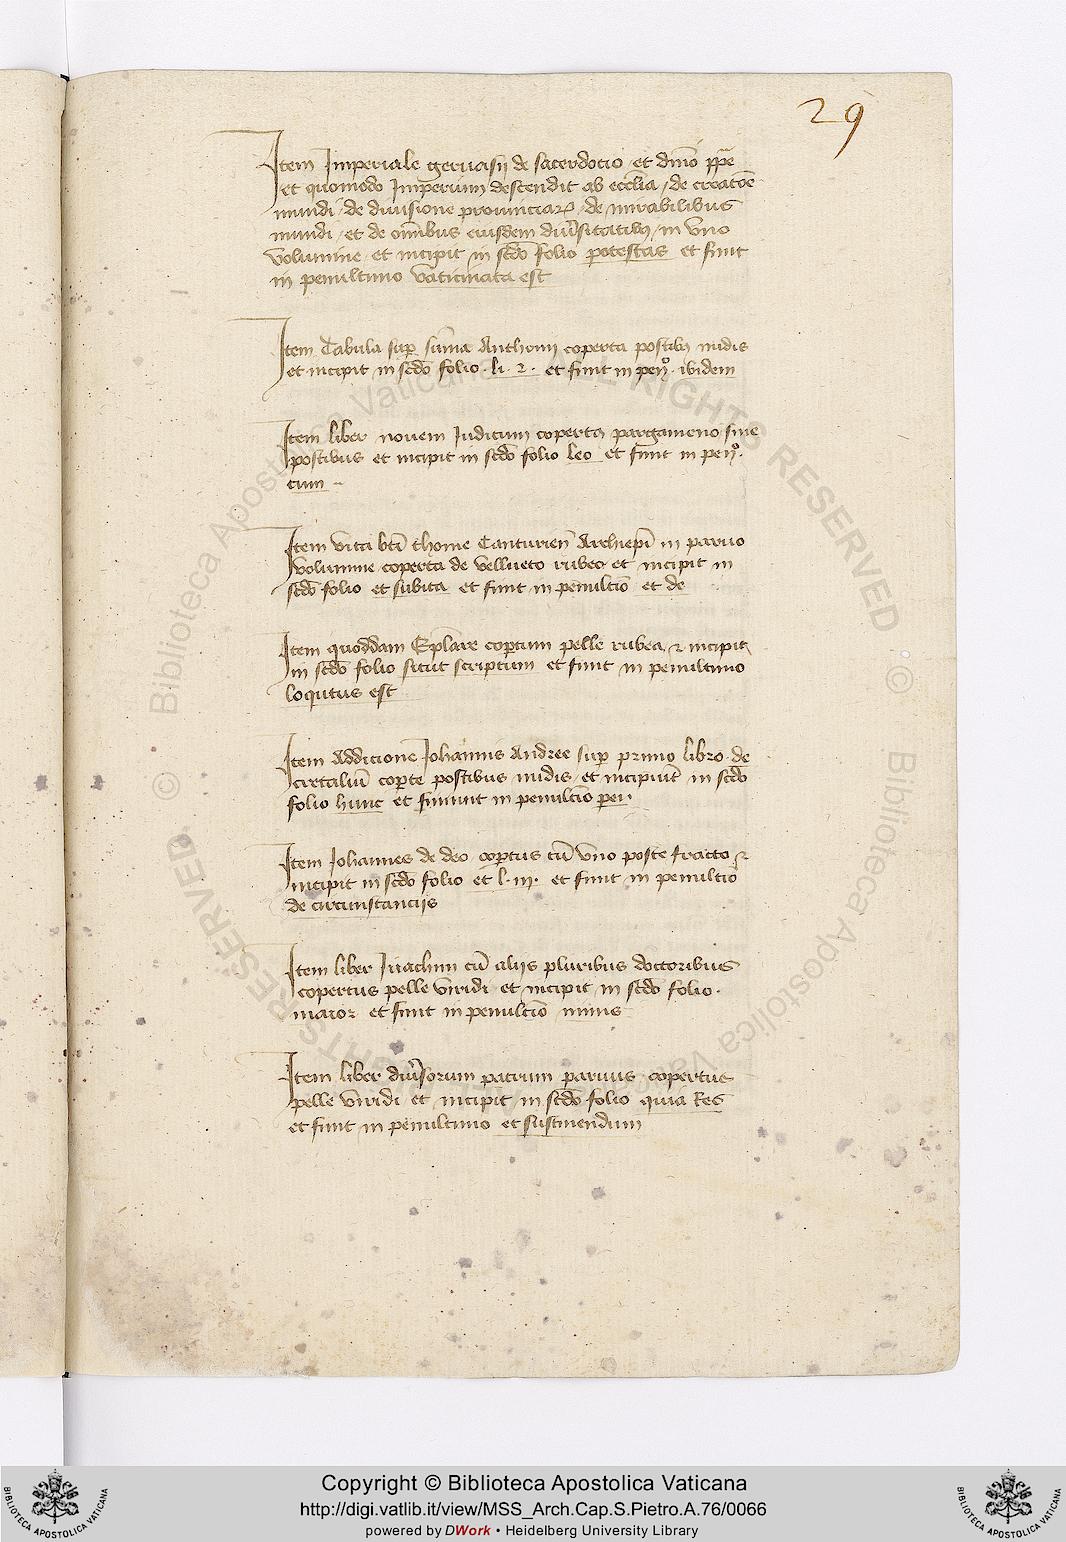 29
Item Imperiale gervasii de sacerdocio et dnio ppe
et quomodo Imperium descendit ab ecclia / de creatoe
mundi / de divisione provinciarꝝ / de mirabilibus
mundi / et de omibus eiusdem diusitatibꝫ / in vno
volumine et incipit in scdo folio potestas et finit
in penultimo vaticinata est
Item Tabula sup suma Anthonii coperta postibꝫ nudis
et incipit in scdo folio · li · 2 · et finit in pen⁰ · ibidem
Item liber novem Iudicum copertus pargameno sine
postibus et incipit in scdo folio leo et finit in pen⁰ ·
cum
Item vita bti thome Canturien Archiepi in parvo
volumine coperta de vellueto rubeo et incipit in
scdo folio et subita et finit in penultio et de
Item quoddam Eplare coptum pelle rubea ⁊ incipit
in scdo folio sicut scriptum et finit in penultimo
loqutus est
Item Addicione Iohannis Andree sup primo libro de
cretaliu copte postibus nudis et incipiut in scdo
folio hunc et finiunt in penultio per
Item Iohannes de deo coptus cu vno poste fracto ⁊
incipit in scdo folio et l · iii · et finit in penultio
de circunstanciis
Item liber Ivachim cu aliis pluribus doctoribus
copertus pelle viridi et incipit in scdo folio ·
maior et finit in penultio minus
Item liber diusorum patrum parvus copertus
pelle viridi et incipit in scdo folio quia Res
et finit in penultimo et sustinendum
© Biblioteca Apostolica Vaticana ALL RIGHTS RESERVED
© Biblioteca Apostolica Vaticana ALL RIGHTS RESERVED
BIBLIOTECA APOSTOLICA VATICANA
Copyright © Biblioteca Apostolica Vaticana
http://digi.vatlib.it/view/MSS_Arch.Cap.S.Pietro.A.76/0066
powered by DWork • Heidelberg University Library
BIBLIOTECA APOSTOLICA VATICANA